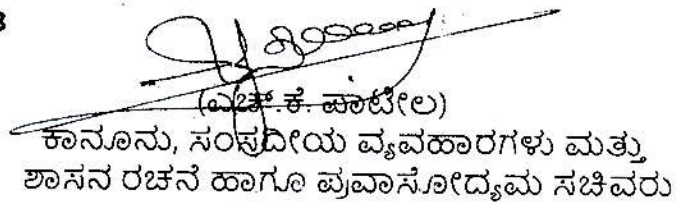 (ಎಚ್.ಕೆ. ಪಾಟೀಲ)
ಕಾನೂನು, ಸಂಸದೀಯ ವ್ಯವಹಾರಗಳು ಮತ್ತು
ಶಾಸನ ರಚನೆ ಹಾಗೂ ಪ್ರವಾಸೋದ್ಯಮ ಸಚಿವರು